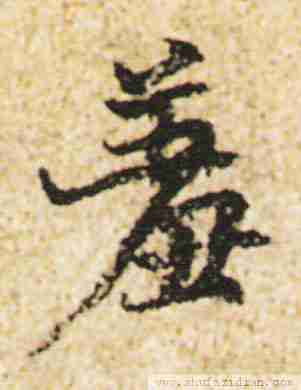 羞
www.shufazidian.com